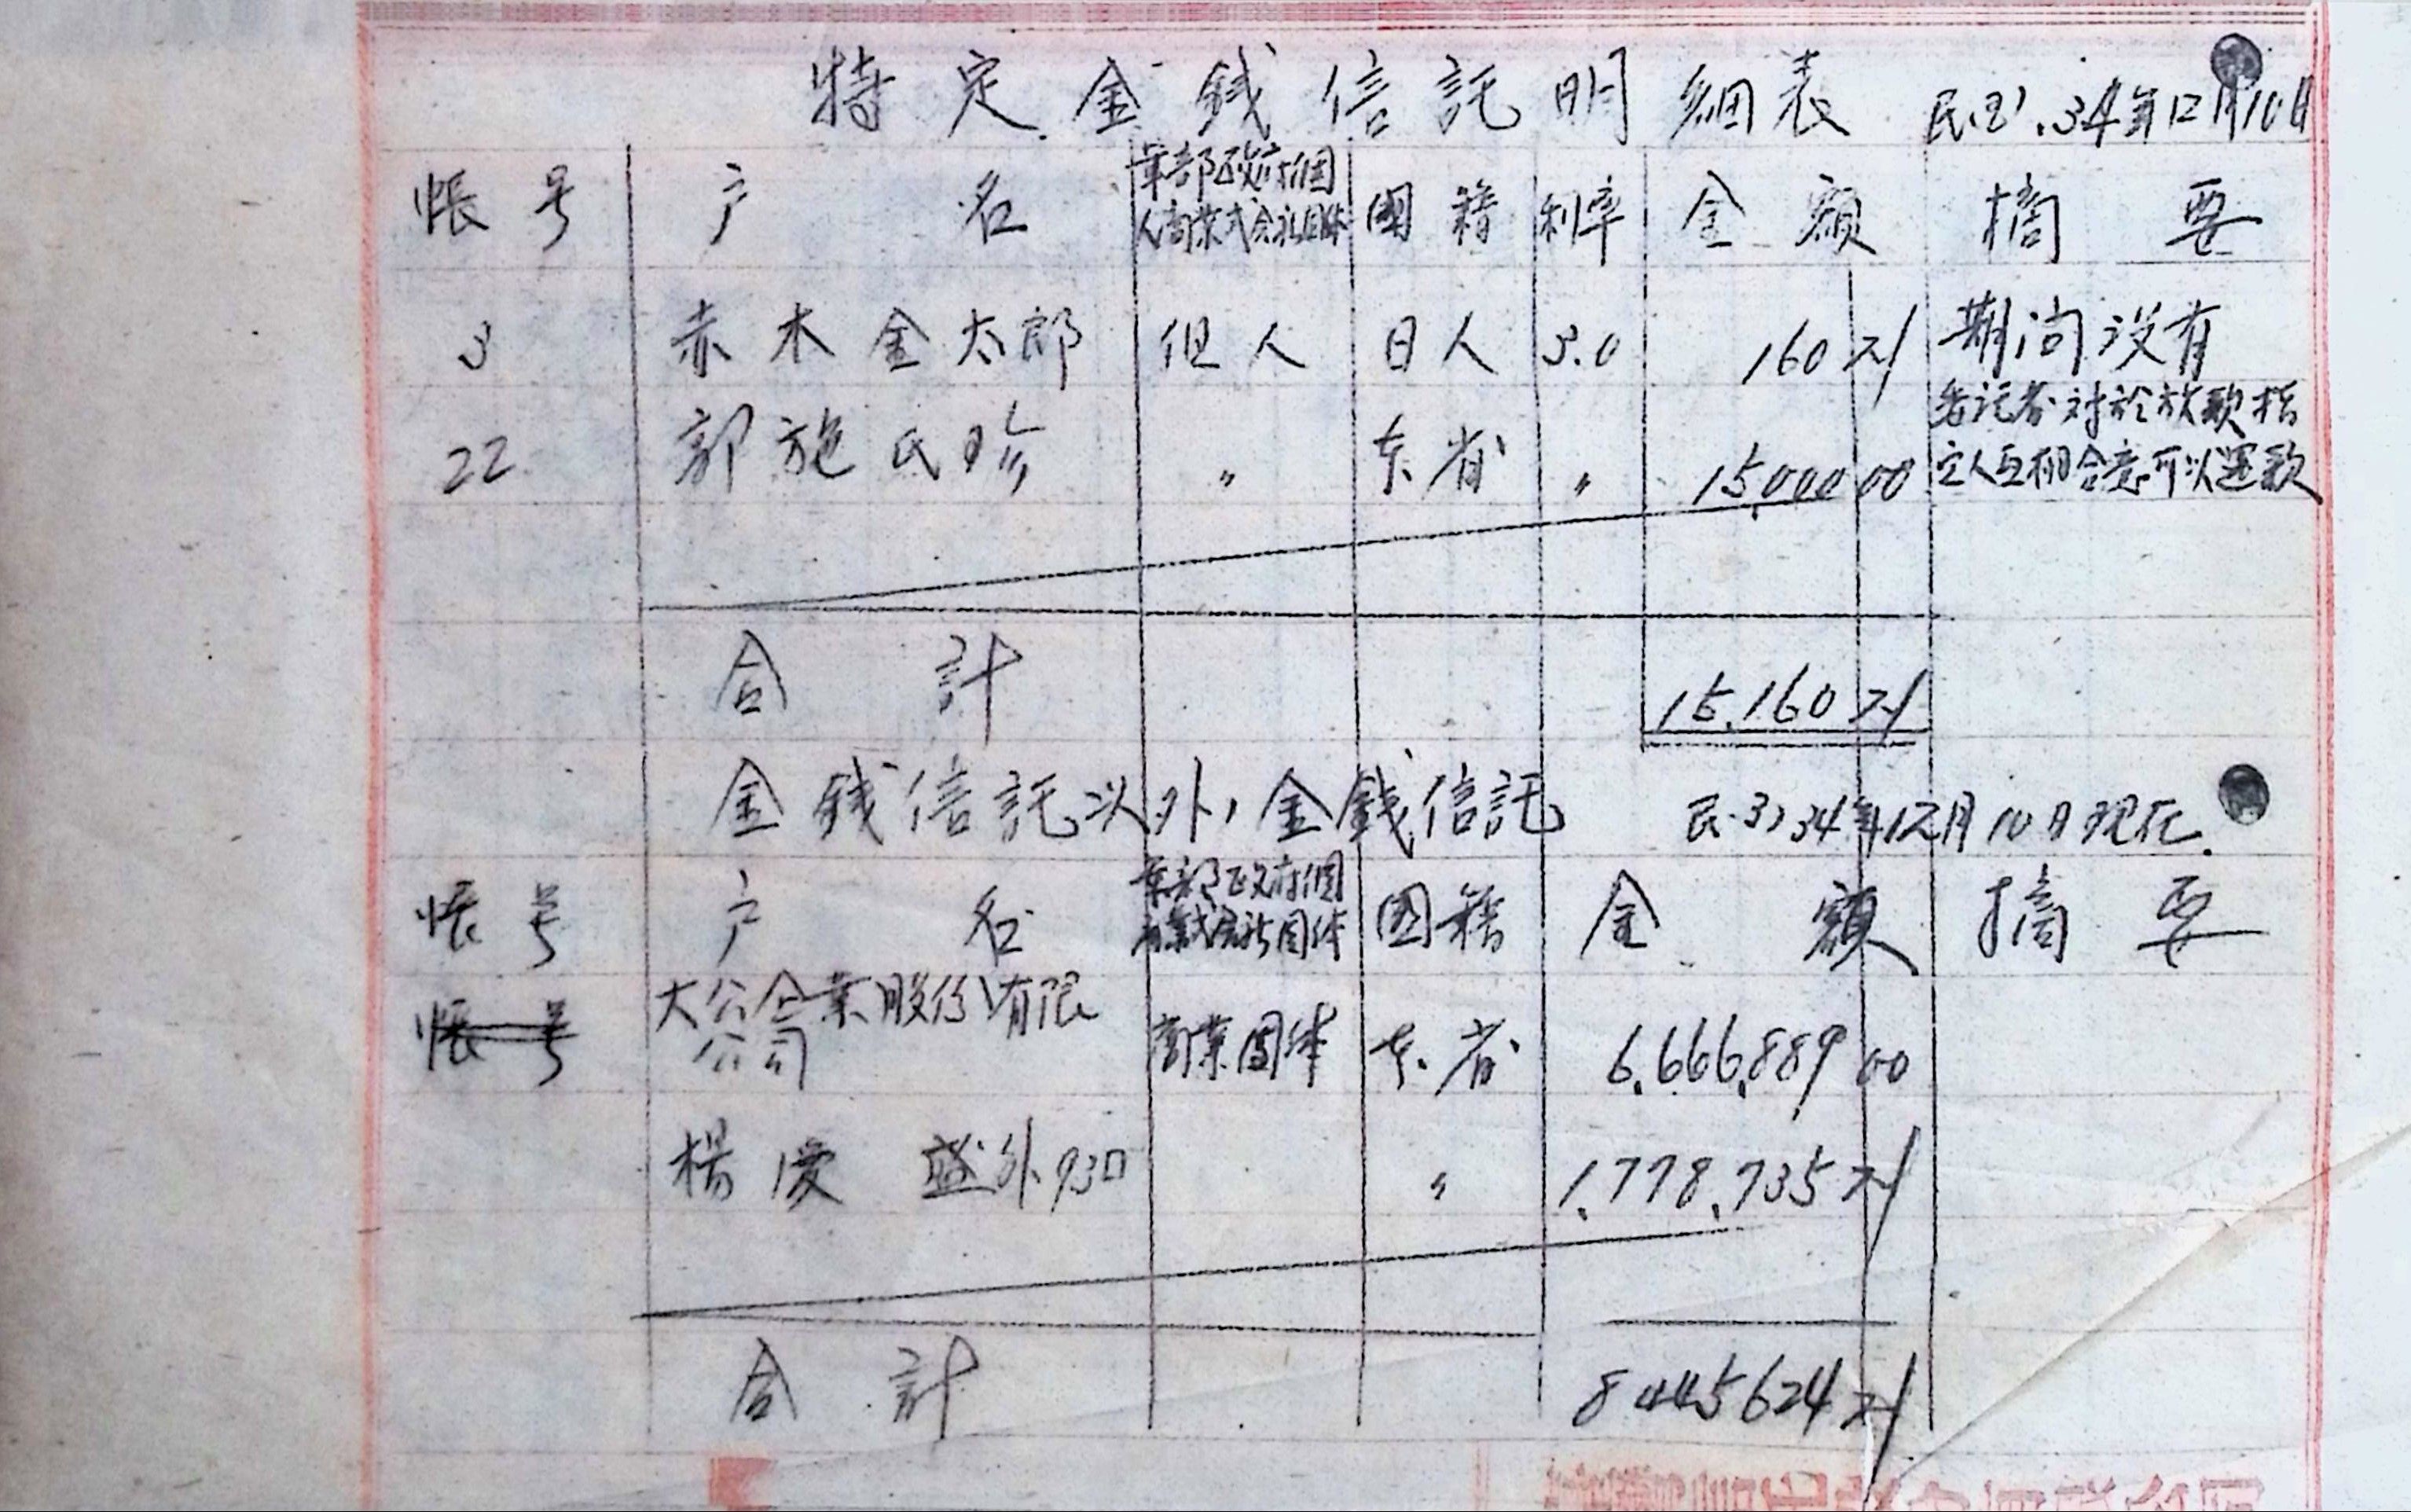 特定金錢信託明細表 民国.34年12月10日
帳号 户名 軍部政府個 國籍 利率 金額 摘要
人商業式会社団体
3 赤木金太郎 但人 日人 3.0 160 21 期间没有
委託者对於放款指
22 郭施氏珍 〃 本省 〃 15,000 00 定人互相合意可以還款
合計 15,160 21
金錢信託以外,金錢信託 民.34年12月10日现在.
帳号 户名 軍部政府個 國籍 金額 摘要
帳号 大公企業股份有限
公司 商業團体 本省 6,666,889 00
楊慶盛外93口 〃 1,778,735 21
合計 8445624 21